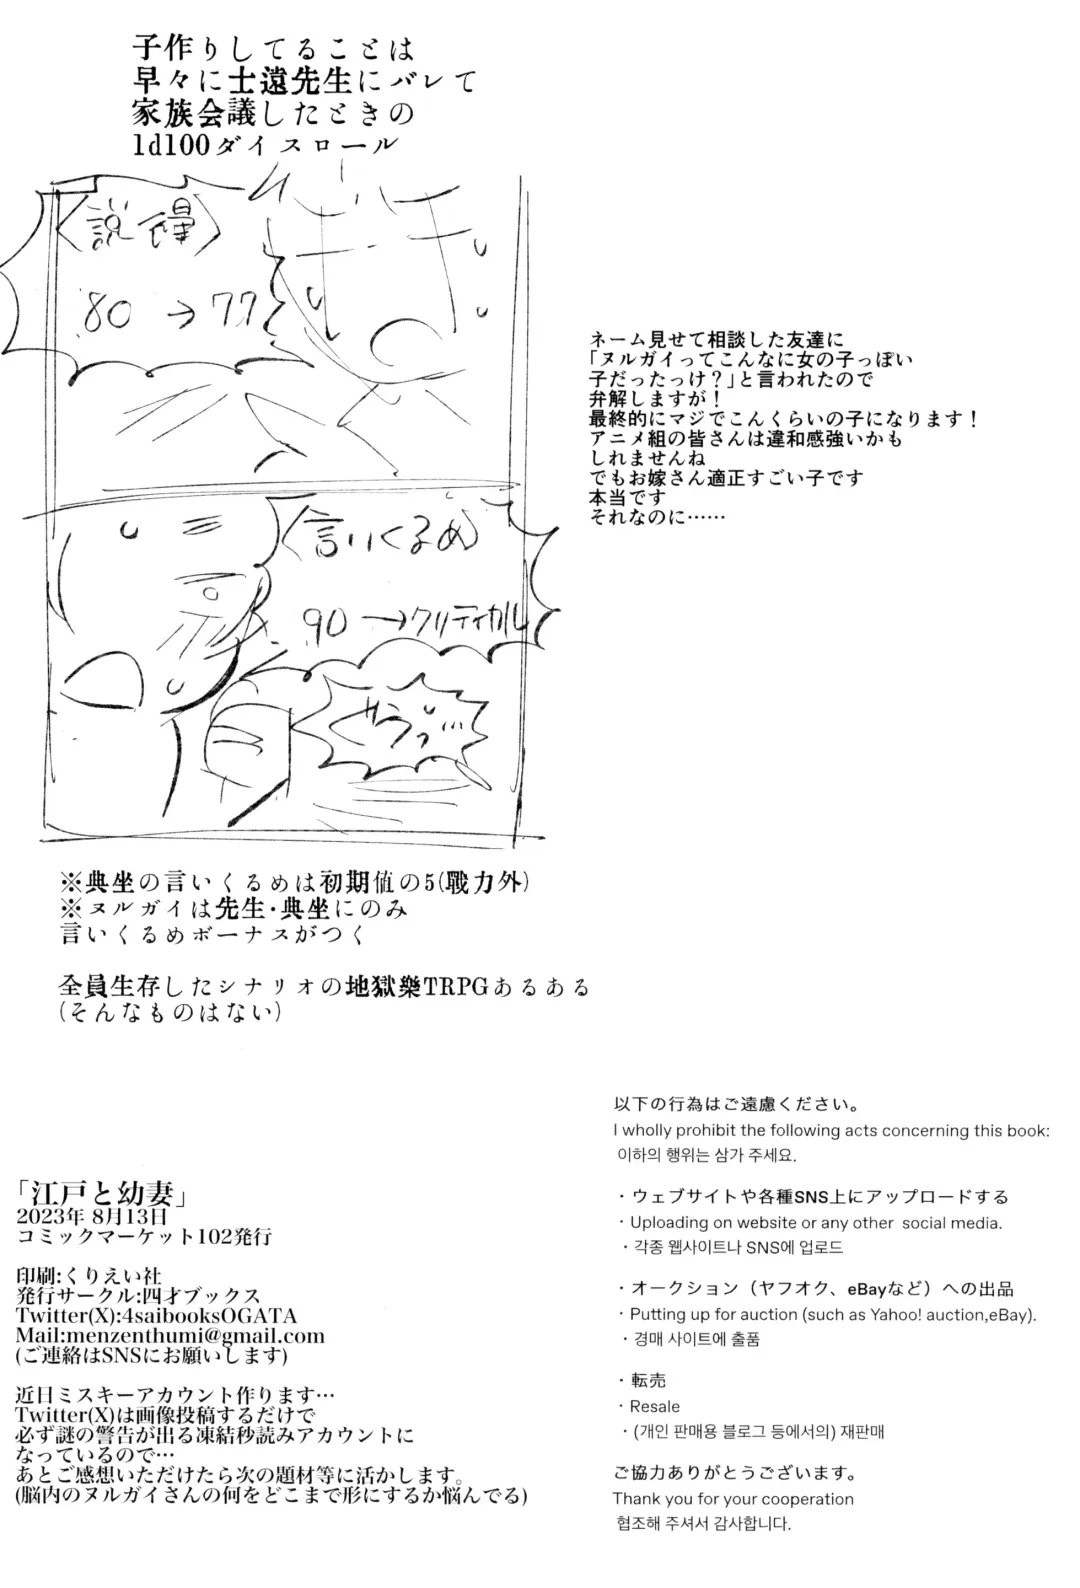 子作りしてることは
早々に士遠先生にバレて
家族会議したときの
1d100ダイスロール
〈説得〉
80→77
〈言いくるめ〉
90→クリティカル
ネーム見せて相談した友達に
「ヌルガイってこんなに女の子っぽい
子だったっけ？」と言われたので
弁解しますが！
最終的にマジでこんくらいの子になります！
アニメ組の皆さんは違和感強いかも
しれませんね
でもお嫁さん適正すごい子です
本当です
それなのに……
※典坐の言いくるめは初期値の5(戦力外)
※ヌルガイは先生・典坐にのみ
言いくるめボーナスがつく
全員生存したシナリオの地獄樂TRPGあるある
(そんなものはない)
「江戸と幼妻」
2023年 8月13日
コミックマーケット102発行
印刷:くりえい社
発行サークル:四才ブックス
Twitter(X):4saibooksOGATA
Mail:menzenthumi@gmail.com
(ご連絡はSNSにお願いします)
近日ミスキーアカウント作ります…
Twitter(X)は画像投稿するだけで
必ず謎の警告が出る凍結秒読みアカウントに
なっているので…
あとご感想いただけたら次の題材等に活かします。
(脳内のヌルガイさんの何をどこまで形にするか悩んでる)
以下の行為はご遠慮ください。
I wholly prohibit the following acts concerning this book:
이하의 행위는 삼가 주세요.
・ウェブサイトや各種SNS上にアップロードする
・Uploading on website or any other social media.
・각종 웹사이트나 SNS에 업로드
・オークション（ヤフオク、eBayなど）への出品
・Putting up for auction (such as Yahoo! auction,eBay).
・경매 사이트에 출품
・転売
・Resale
・(개인 판매용 블로그 등에서의) 재판매
ご協力ありがとうございます。
Thank you for your cooperation
협조해 주셔서 감사합니다.